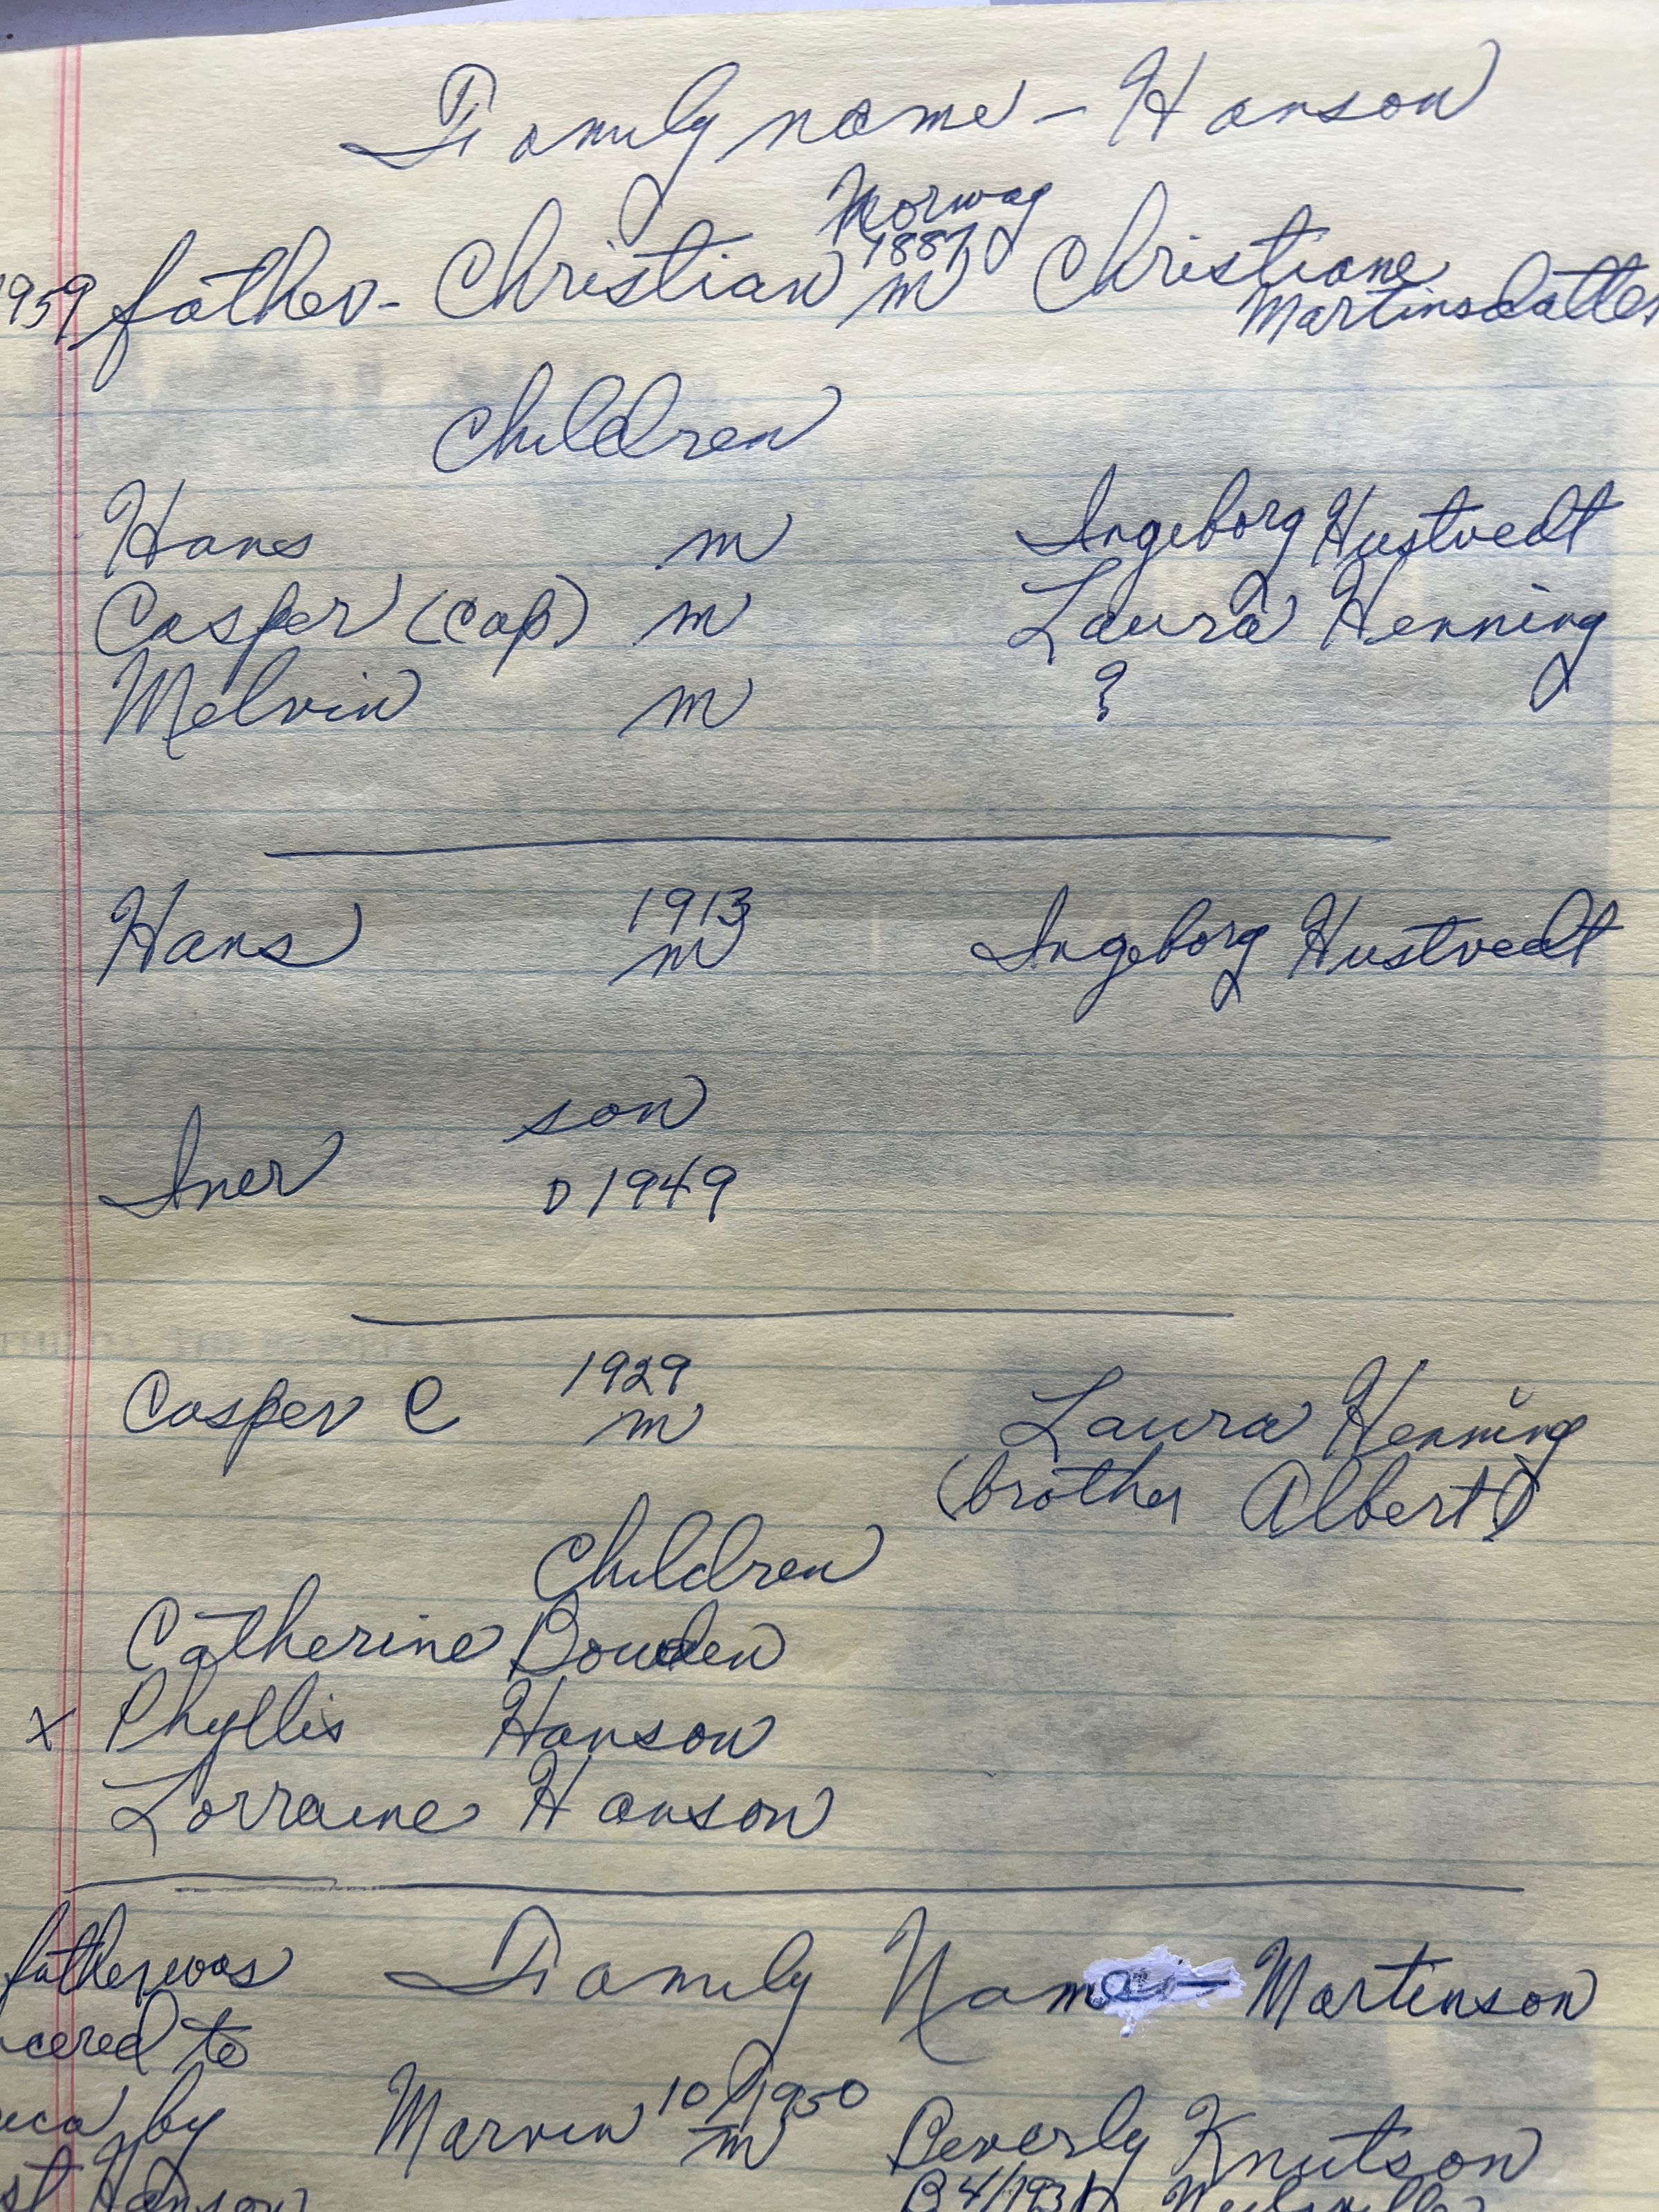 Family name - Hanson
Norway
1959 father - Christian 1887 m Christiane
Martinsdatter
Children
Hans m Ingeborg Hustvedt
Casper (Cap) m Laura Henning
Melvin m ?
1913
Hans m Ingeborg Hustvedt
son
Iner D 1949
1929
Casper C m Laura Henning
(brother Albert)
Children
Catherine Bowden
x Phyllis Hanson
Lorraine Hanson
father was Family Name - Martinson
to
10/1950
by Marvin m Beverly Knutson
Hanson B 4/1931